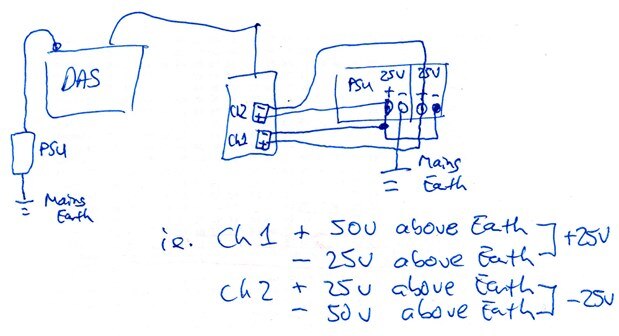 DAS
PSU
Mains
Earth
Ch2 + -
Ch1 + -
PSU 25V 25V
+ - + -
Mains
Earth
ie. Ch 1 + 50V above Earth
- 25V above Earth
+25V
Ch 2 + 25V above Earth
- 50V above Earth
-25V